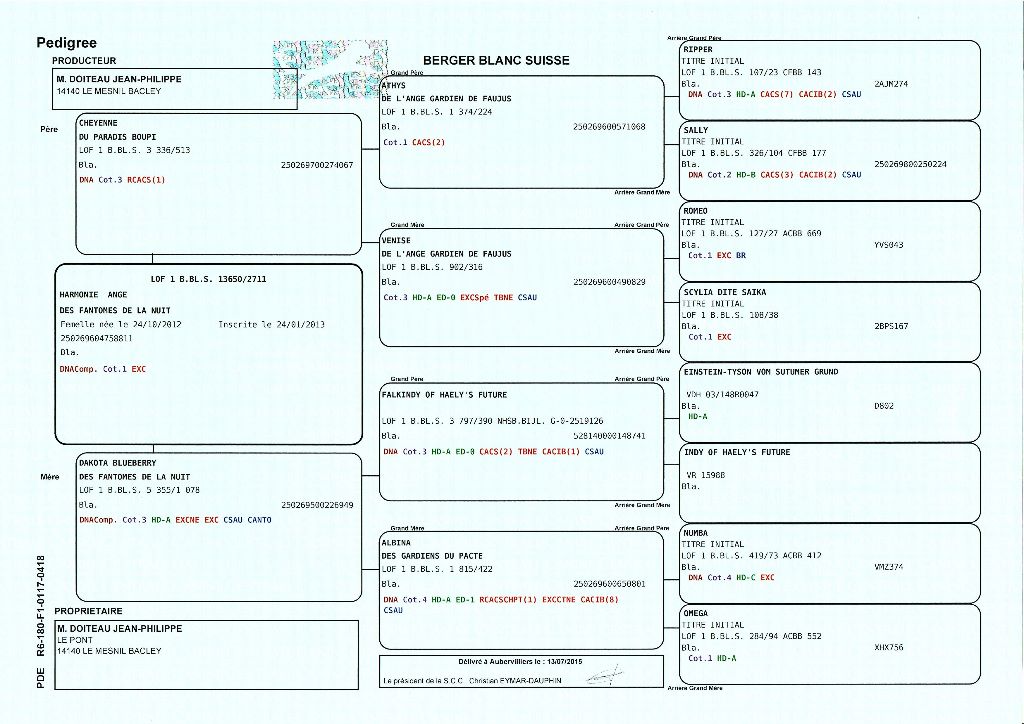 Pedigree
PRODUCTEUR
M. DOITEAU JEAN-PHILIPPE
14140 LE MESNIL BACLEY
BERGER BLANC SUISSE
Père
CHEYENNE
DU PARADIS BOUPI
LOF 1 B.BL.S. 3 336/513
Bla. 250269700274067
DNA Cot.3 RCACS(1)
LOF 1 B.BL.S. 13650/2711
HARMONIE ANGE
DES FANTOMES DE LA NUIT
Femelle née le 24/10/2012 Inscrite le 24/01/2013
250269604758811
Bla.
DNAComp. Cot.1 EXC
Mère
DAKOTA BLUEBERRY
DES FANTOMES DE LA NUIT
LOF 1 B.BL.S. 5 355/1 078
Bla. 250269500226949
DNAComp. Cot.3 HD-A EXCNE EXC CSAU CANTO
PROPRIETAIRE
M. DOITEAU JEAN-PHILIPPE
LE PONT
14140 LE MESNIL BACLEY
PDE R6-180-F1-0117-0418
Grand Père
ATHYS
DE L'ANGE GARDIEN DE FAUJUS
LOF 1 B.BL.S. 1 374/224
Bla. 250269600571068
Cot.1 CACS(2)
Arrière Grand Mère
Grand Mère Arrière Grand Père
VENISE
DE L'ANGE GARDIEN DE FAUJUS
LOF 1 B.BL.S. 902/316
Bla. 250269600490829
Cot.3 HD-A ED-0 EXCSpé TBNE CSAU
Arrière Grand Mère
Grand Père Arrière Grand Père
FALKINDY OF HAELY'S FUTURE
LOF 1 B.BL.S. 3 797/390 NHSB.BIJL. G-0-2519126
Bla. 528140000148741
DNA Cot.3 HD-A ED-0 CACS(2) TBNE CACIB(1) CSAU
Arrière Grand Mère
Grand Mère Arrière Grand Père
ALBINA
DES GARDIENS DU PACTE
LOF 1 B.BL.S. 1 815/422
Bla. 250269600650801
DNA Cot.4 HD-A ED-1 RCACSCHPT(1) EXCCTNE CACIB(8)
CSAU
Délivré à Aubervilliers le : 13/07/2015
Le président de la S.C.C. Christian EYMAR-DAUPHIN
Arrière Grand Père
RIPPER
TITRE INITIAL
LOF 1 B.BL.S. 107/23 CFBB 143
Bla. 2AJM274
DNA Cot.3 HD-A CACS(7) CACIB(2) CSAU
SALLY
TITRE INITIAL
LOF 1 B.BL.S. 326/104 CFBB 177
Bla. 250269800250224
DNA Cot.2 HD-B CACS(3) CACIB(2) CSAU
ROMEO
TITRE INITIAL
LOF 1 B.BL.S. 127/27 ACBB 669
Bla. YVS043
Cot.1 EXC BR
SCYLIA DITE SAIKA
TITRE INITIAL
LOF 1 B.BL.S. 108/38
Bla. 2BPS167
Cot.1 EXC
EINSTEIN-TYSON VOM SUTUMER GRUND
VDH 03/148R0047
Bla. D802
HD-A
INDY OF HAELY'S FUTURE
VR 15988
Bla.
NUMBA
TITRE INITIAL
LOF 1 B.BL.S. 419/73 ACBB 412
Bla. VMZ374
DNA Cot.4 HD-C EXC
OMEGA
TITRE INITIAL
LOF 1 B.BL.S. 284/94 ACBB 552
Bla. XHX756
Cot.1 HD-A
Arrière Grand Mère